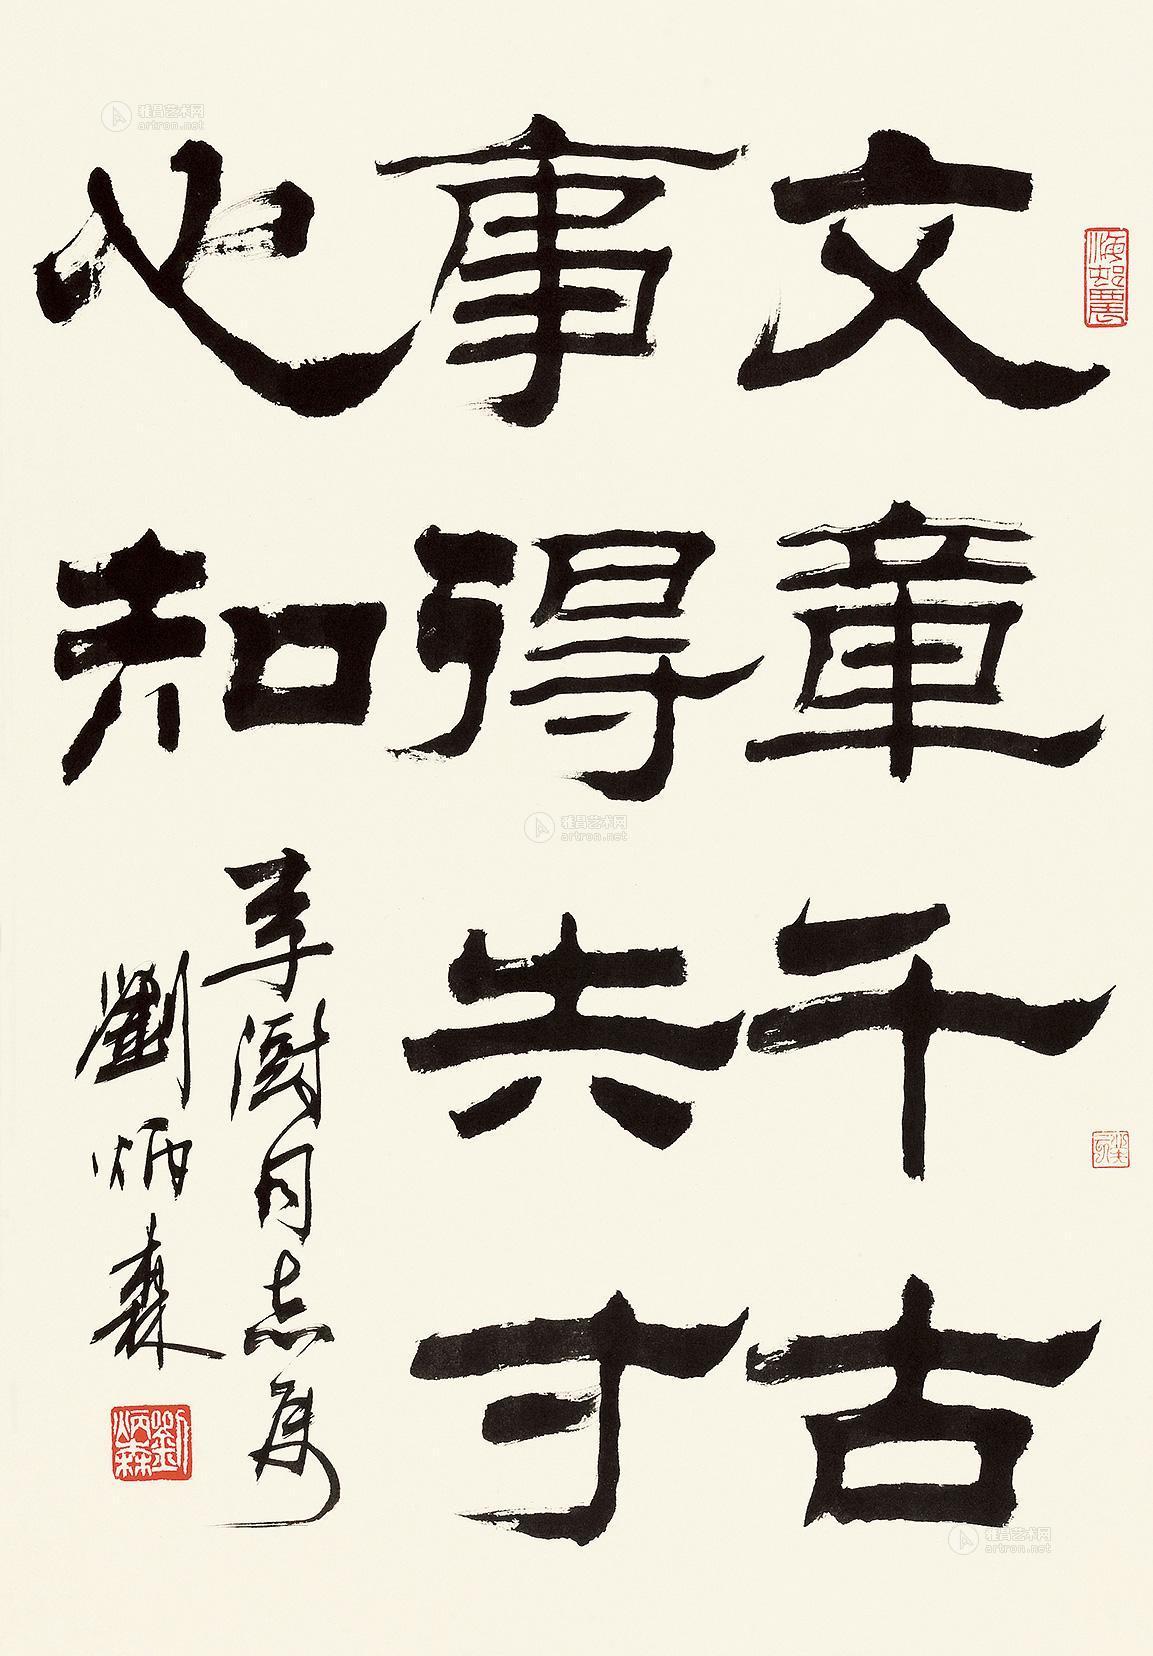 文章千古
事得失寸
心知
同志属
劉炳森
劉炳森
雅昌艺术网
artron.net
雅昌艺术网
artron.net
雅昌艺术网
artron.net